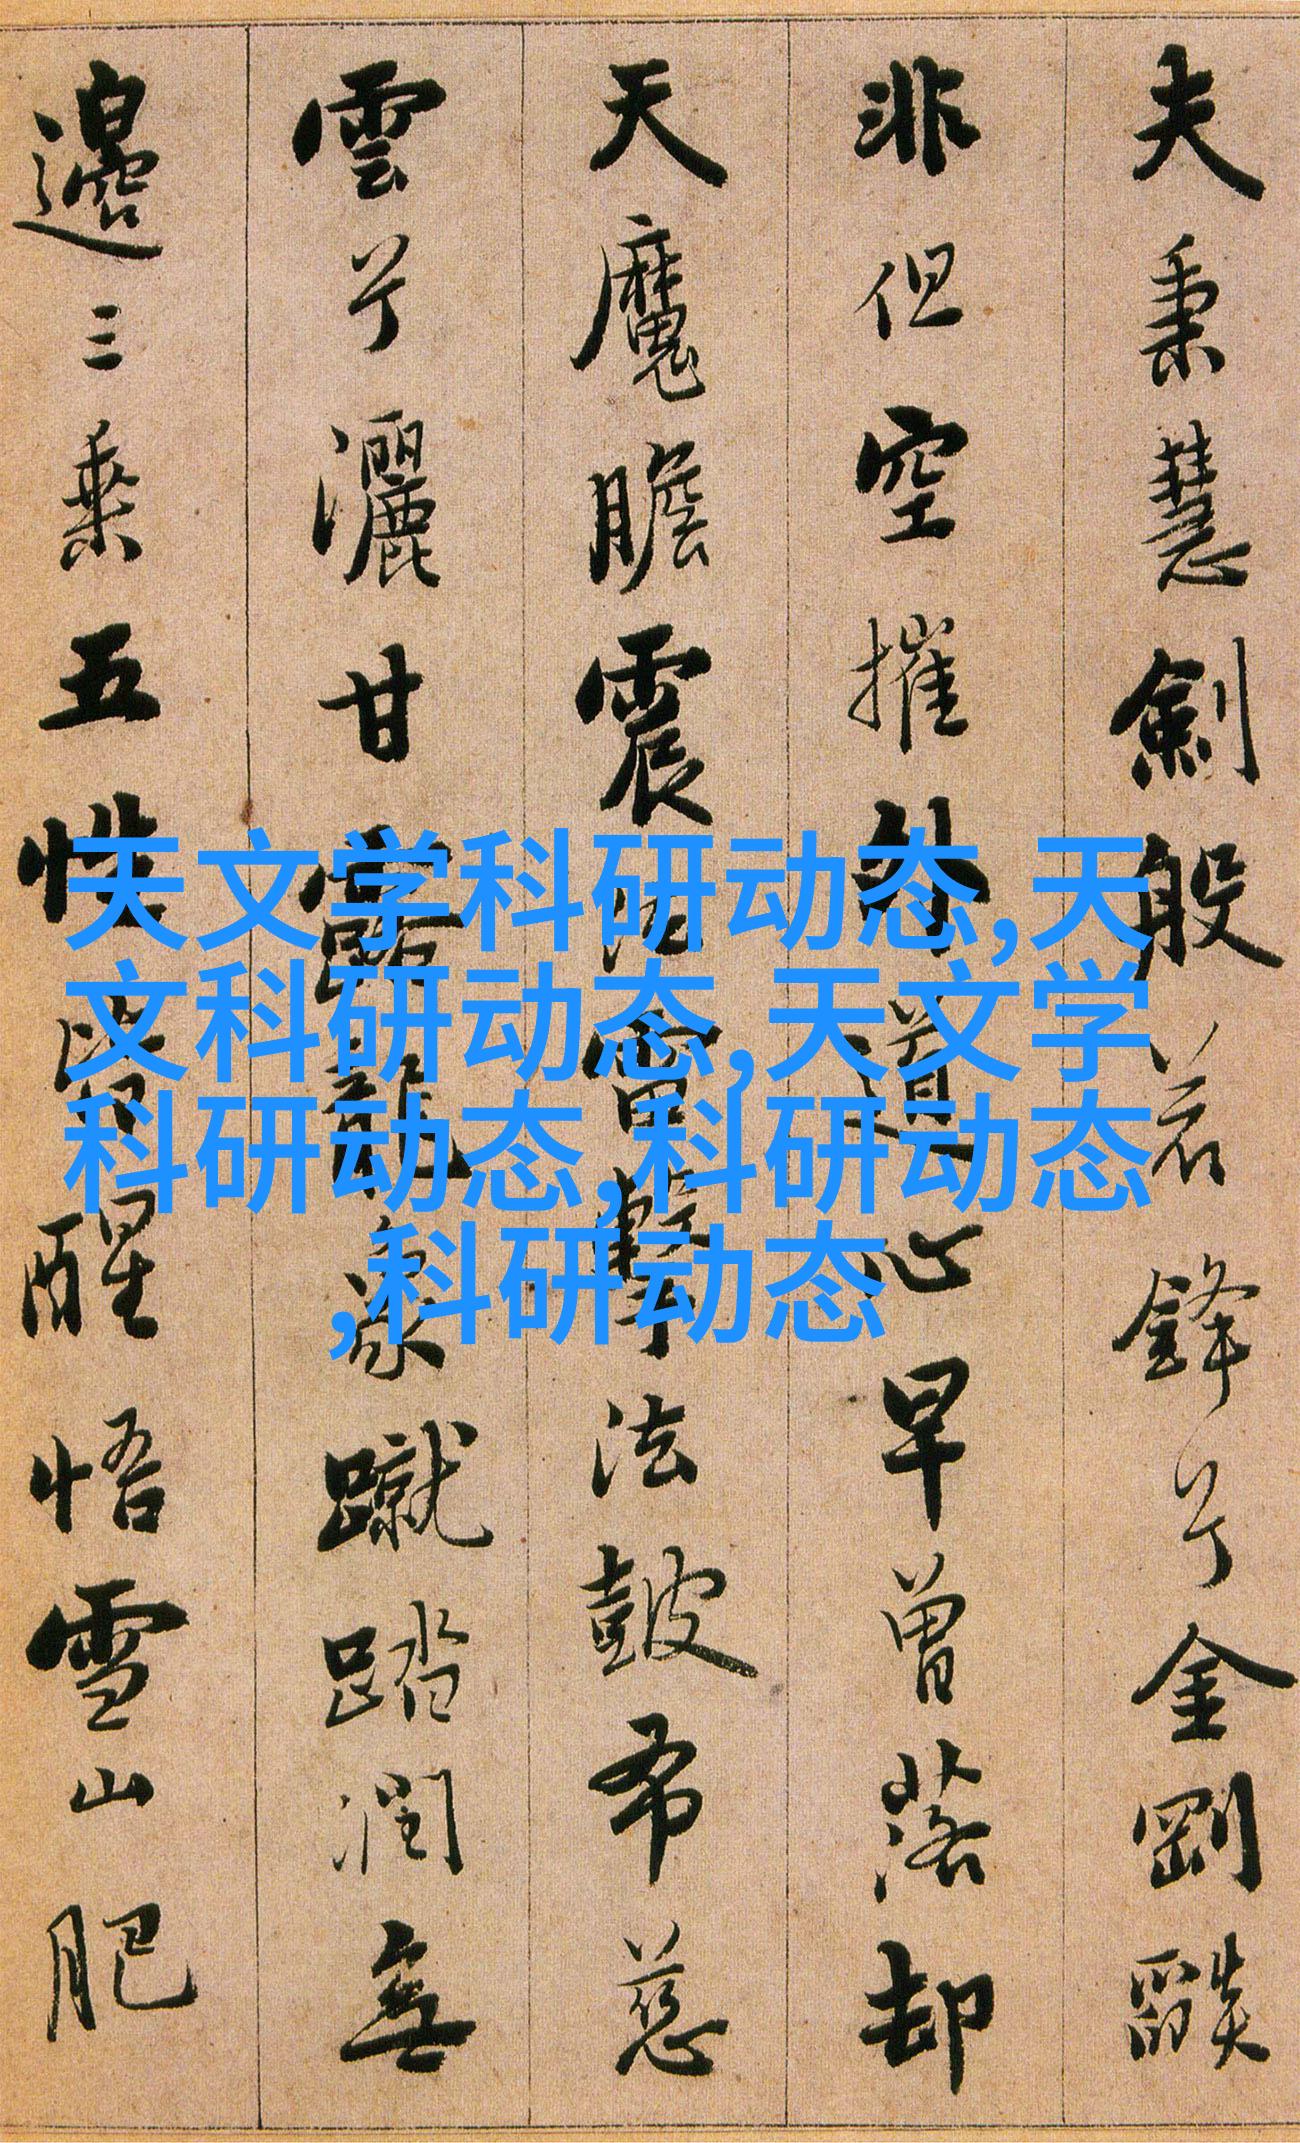 夫秉慧劍般若鋒兮金剛燄
非但空摧外道心早曾落却
天魔膽震法雷擊法皷布慈
雲兮灑甘露龍象蹴踏潤無
邊三乘五性皆醒悟雪山肥
天文学科研动态,天
文科研动态,天文学
科研动态,科研动态
,科研动态